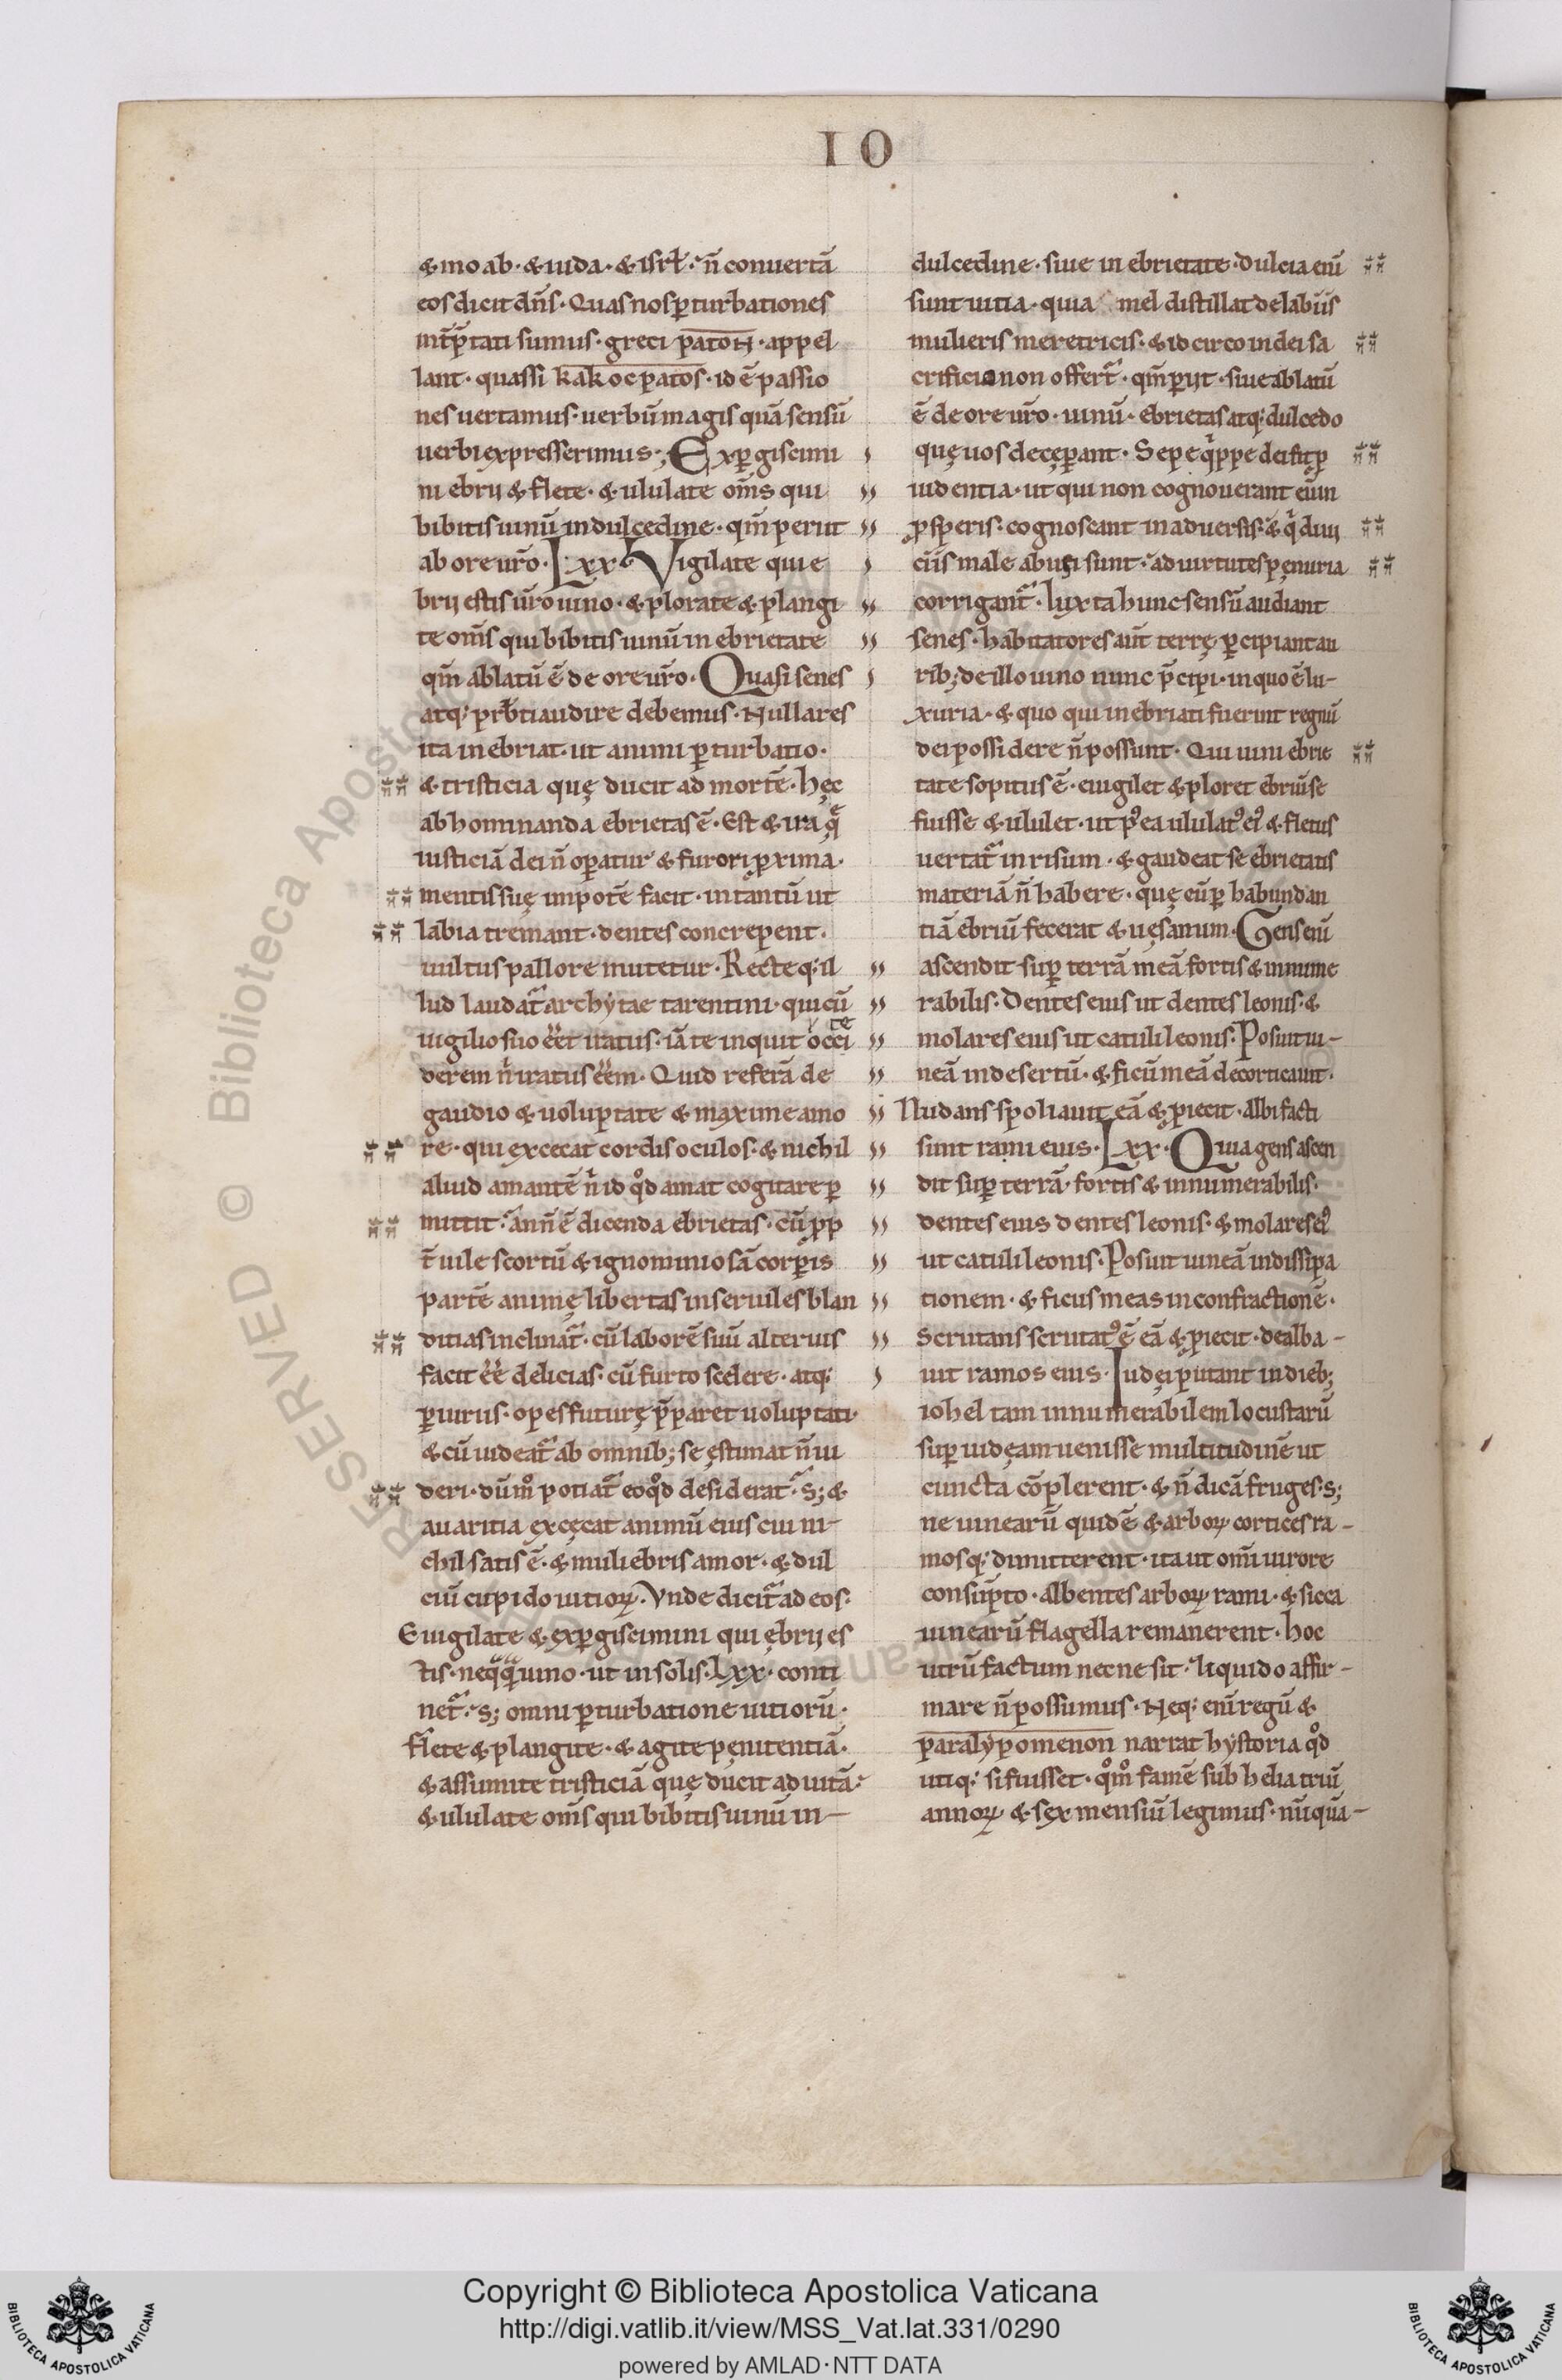 IO
& moab · & iuda · & isrł · n̄ conuertā
eos dicit dn̄s · Quas nos ꝑturbationes
int̄ꝑtati sumus · greci patoн · appel
lant · quassi kakoc patos · id ē passio
nes uertamus · uerbū magis quā sensū
uerbi expresserimus ·; Exꝑgiscimi
ni ebrij & flete · & ululate om̄s qui
bibitis uinū in dulcedine · qm̄ perut
ab ore ur̄o · Lxx · Vigilate qui e
brij estis ur̄o uino · & plorate & plangi
te om̄s qui bibitis uinū in ebrietate
qm̄ ablatū ē de ore ur̄o · Quasi senes
atq; prb̄ti audire debemus · Nulla res
ita inebriat · ut animi ꝑturbatio ·
& tristicia quę ducit ad mortē · hęc
abhominanda ebrietas ē · Est & ira q̄
iusticiā dei n̄ oꝑatur & furori ꝓxima ·
mentis suę impotē facit · in tantū ut
labia tremant · dentes concrepent ·
uultus pallore mutetur · Recte q; il
lud laudat̃ archytae tarentini · qui cū
uigilio suo eēt iratus · iā te inquit occi
derem n̄ iratus eēm · Quid referā de
gaudio & uoluptate & maxime amo
re · qui excecat cordis oculos · & nichil
aliud amantē n̄ id qd̊ amat cogitare ꝑ
mittit · an n̄ ē dicenda ebrietas · cū ꝓp
t̄ uile scortū & ignominiosā corꝑis
partē animę libertas in seruiles blan
ditias inclinat̃ · cū laborē suū alterius
facit eē delicias · cū furto scelere · atq;
ꝑiurus · opes futurę p̄paret uoluptati ·
& cū uideat̃ ab omnib; se ęstimat n̄ ui
deri · dūm̊ potiat̃ eo qd̊ desiderat̃ · s; &
auaritia excęcat animū eius cui ni-
chil satis ē · & muliebris amor · & dul
ciū cupido uitioꝝ · Vnde dicit̃ ad eos ·
Euigilate & exꝑgiscimini qui ębrij es
tis · neqq̄ꝑ uino · ut in solis · Lxx · conti
net̃ · s; omni ꝑturbatione uitiorū ·
flete & plangite · & agite penitentiā ·
& assumite tristiciā quę ducit ad uitā ·
& ululate om̄s qui bibitis uinū in-
dulcedine · siue in ebrietate · dulcia enī
sunt uitia · quia mel distillat de labiis
mulieris meretricis · & idcirco in dei sa
crificio non offert̃ · qm̄ ꝑijt · siue ablatū
ē de ore ur̄o · uinū · ebrietas atq; dulcedo
quę uos decęꝑant · Sepe qͥppe dei fit ꝓ
uidentia · ut qui non cognouerant eūm
ꝓsperis · cognoscant in aduersis · & qͥ diui
ciis male abusi sunt · ad uirtutes penuria
corrigant̃ · Iuxta hunc sensū audiant
senes · habitatores aut̄ terrę ꝑcipiant au
rib; de illo uino nunc p̄cipi · in quo ē lu-
xuria · & quo qui inebriati fuerint regnū
dei possidere n̄ possunt · Qui uini ebrie
tate sopitus ē · euigilet & ploret ebriū se
fuisse & ululet · ut p̊ ea ululatꝰ eiꝰ & fletus
uertat̃ in risum · & gaudeat se ebrietatis
materiā n̄ habere · quę eū ꝑ habundan
tiā ebriū fecerat & uęsanum · Gens enī
ascendit suꝑ terrā meā fortis & innume
rabilis · Dentes eius ut dentes leonis · &
molares eius ut catuli leonis · Posuit ui-
neā in desertū · & ficū meā decorticauit ·
Nudans spoliauit eā & ꝓiecit · Albi facti
sunt rami eius · Lxx · Quia gens ascen
dit suꝑ terrā fortis & innumerabilis ·
dentes eius dentes leonis · & molares eiꝰ
ut catuli leonis · Posuit uineā in dissipa
tionem · & ficus meas in confractionē ·
Scrutans scrutatꝰ ē eā & ꝓiecit · dealba-
uit ramos eius · Iudęi putant in dieb;
iohel tam innumerabilem locustarū
suꝑ iudęam uenisse multitudinē ut
cuncta cōplerent · & n̄ dicā fruges · s;
ne uinearū quidē & arboꝝ cortices ra-
mosq; dimitterent · ita ut om̄i uirore
consūpto · albentes arboꝝ rami · & sicca
uinearū flagella remanerent · hoc
utrū factum necne sit · liquido affir-
mare n̄ possumus · Neq; enī regū &
paralypomenon narrat hystoria qd̊
utiq; si fuisset · qm̊ famē sub helia triū
annoꝝ & sex mensiū legimus · nūquā-
Copyright © Biblioteca Apostolica Vaticana
http://digi.vatlib.it/view/MSS_Vat.lat.331/0290
powered by AMLAD · NTT DATA
BIBLIOTECA APOSTOLICA VATICANA
BIBLIOTECA APOSTOLICA VATICANA